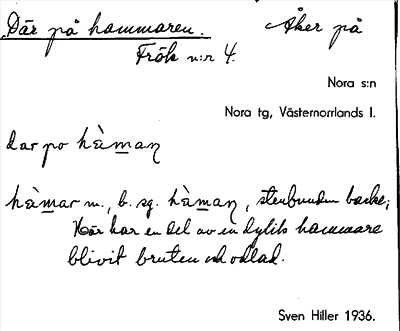 Där på hammaren. Åker på
Frök n:r 4.
Nora s:n
Nora tg, Västernorrlands l.
dar po hàmaŋ
hàmar m., b. sg. hàmaŋ, stenbunden backe;
Här har en del av en dylik hammare
blivit bruten och odlad.
Sven Hiller 1936.